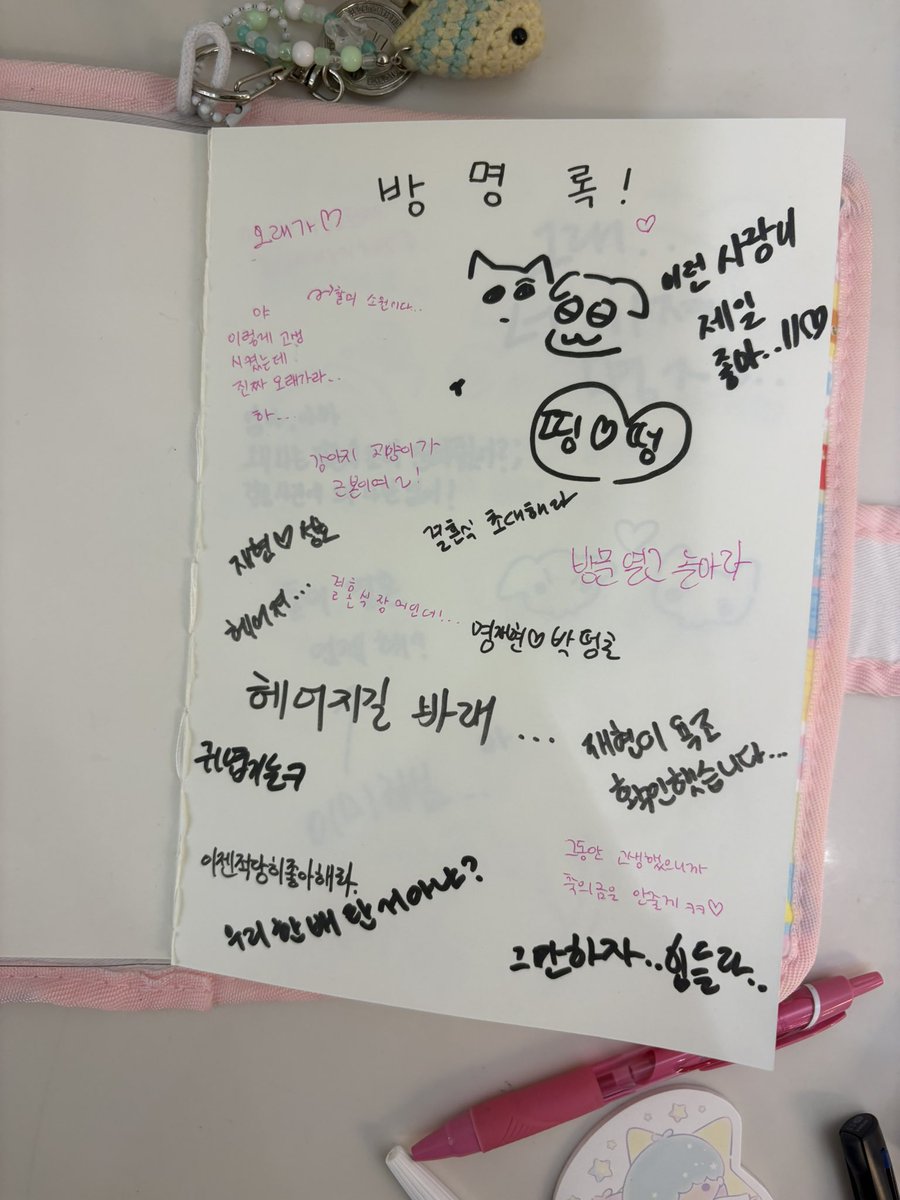 방 명 록!
오래가♡
이런 사랑이
제일
좋아..!!♡
할미 소원이다..
야
이렇게 고생
시켰는데
진짜 오래가라..
하...
띵♡펑
강아지 고양이가
근본이여~!
결혼식 초대해라
재현♡성호
방문 열고 놀아라
헤어져...
결혼식장 어딘데!...
명재현♡박펑글
헤어지길 바래...
재현이 욕조
확인했습니다...
귀엽기는ㅋ
그동안 고생했으니까
축의금은 안줄게ㅋㅋ♡
이젠적당히좋아해라.
우리 한 배 탄 서아냐?
그만하자..힘들다..